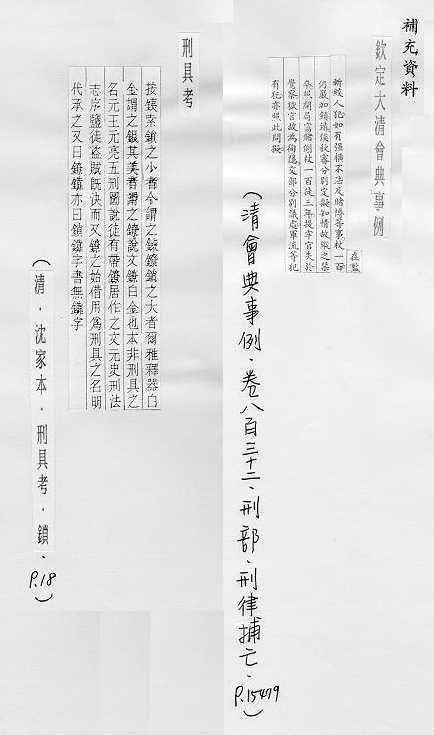 補充資料
欽定大清會典事例
在監
斬絞人犯如有強橫不法及賭博等事杖一百
仍嚴加鎖錮候秋審分別定擬知情故縱之禁
卒照開局窩賭例杖一百徒三年提牢官失於
覺察獄官故為徇隱交部分別議處軍流等犯
有犯亦照此問擬
(清會典事例·卷八百三十二·刑部·刑律捕亡·P.15479)
刑具考
按鋃索鎖之小者今謂之鋃鐺鎖之大者爾雅釋器白
金謂之銀其美者謂之鐐說文鐐白金也本非刑具之
名元王元亮五刑圖說徒有帶鐐居作之文元史刑法
志序鹽徒盜賊既決而又鐐之始借用為刑具之名明
代承之又曰鐐鐵亦曰鎖鐵字書無鐵字
(清·沈家本·刑具考·鎖·P.18)